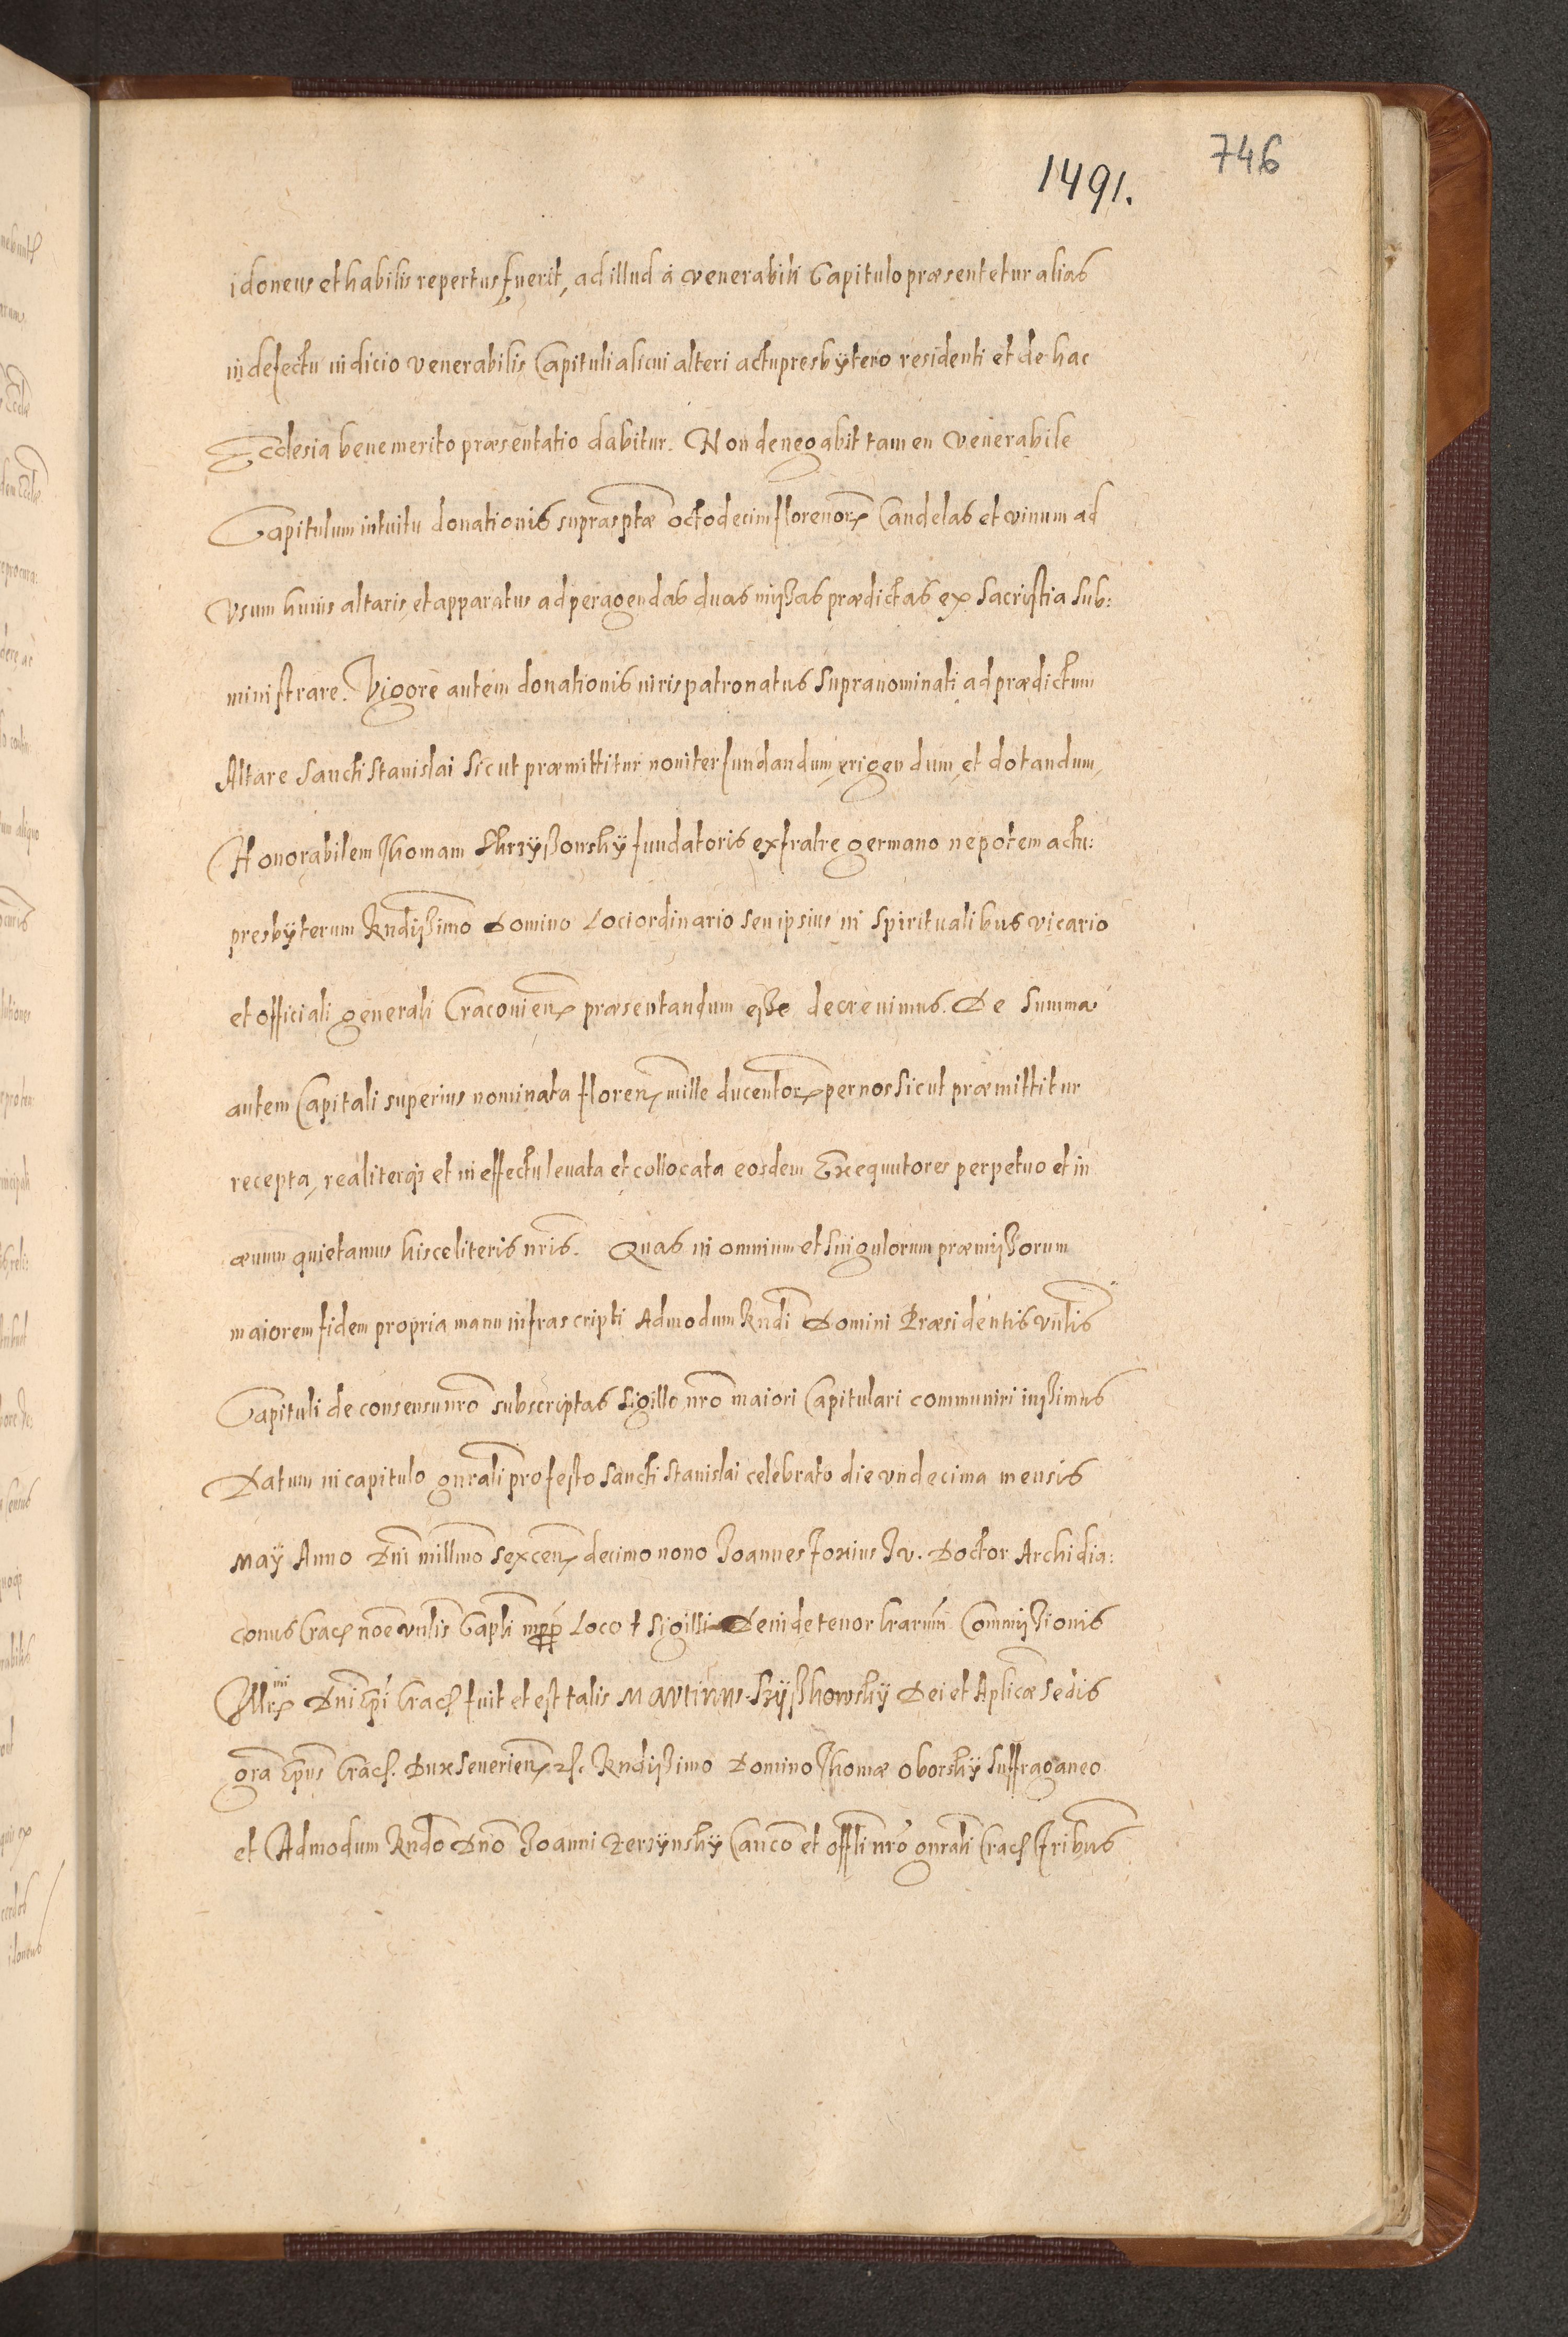 746
1491.
idoneus et habilis repertus fuerit, ad illud à venerabili Capitulo præsentetur alias
in defectu iudicio venerabilis Capituli alicui alteri actu presbÿtero residenti et de hac
Ecclesia benemerito præsentatio dabitur. Non denegabit tamen Venerabile
Capitulum intuitu donationis suprasptæ octodecim florenorꝫ Candelas et vinum ad
Vsum huius altaris, et apparatus ad peragendas duas mißas prædictas ex Sacristia sub:
ministrare. Vigore autem donationis iuris patronatus supranominati ad prædictum
Altare Sancti Stanislai sicut præmittitur noviter fundandum, erigendum, et dotandum,
Honorabilem Thomam fundatoris ex fratre germano nepotem actu:
presbÿterum Rndißimo Domino Loci ordinario seu ipsius in Spiritualibus vicario
et officiali generali Cracouienꝫ præsentandum eße decreuimus. De Summa
autem Capitali superius nominata florenꝫ mille ducentorꝫ per nos sicut præmittitur
recepta, realiterqꝫ et in effectu leuata et collocata eosdem Exequutores perpetuo et in
æuum quietamus hisce literis nris. Quas in omnium et singulorum præmißorum
maiorem fidem propria manu infrascripti Admodum Rndi Domini Præsidentis vnlis
Capituli de consensu nro subscriptas Sigillo nro maiori Capitulari communiri iußimus
Datum in capitulo gnrali pro festo Sancti Stanislai celebrato die vndecima mensis
Maÿ Anno Dni millmo sexcenꝫ decimo nono Joannes Foxius JV. Doctor Archidia:
conus Cracꝫ noe vnlis Capli mpp Loco † Sigilli Deinde tenor lrarum Commißionis
Illrꝫmi Dni Epi Cracꝫ fuit et est talis Martinus Szÿßkowskÿ Dei et Aplicæ Sedis
gra Epus Cracꝫ. Dux Seuerienꝫ Rndißimo Domino Thomæ Oborskÿ Suffraganeo
et Admodum Rndo Dno Joanni Zerzÿnskÿ Canco et offli nro gnrali Cracꝫ Fribus